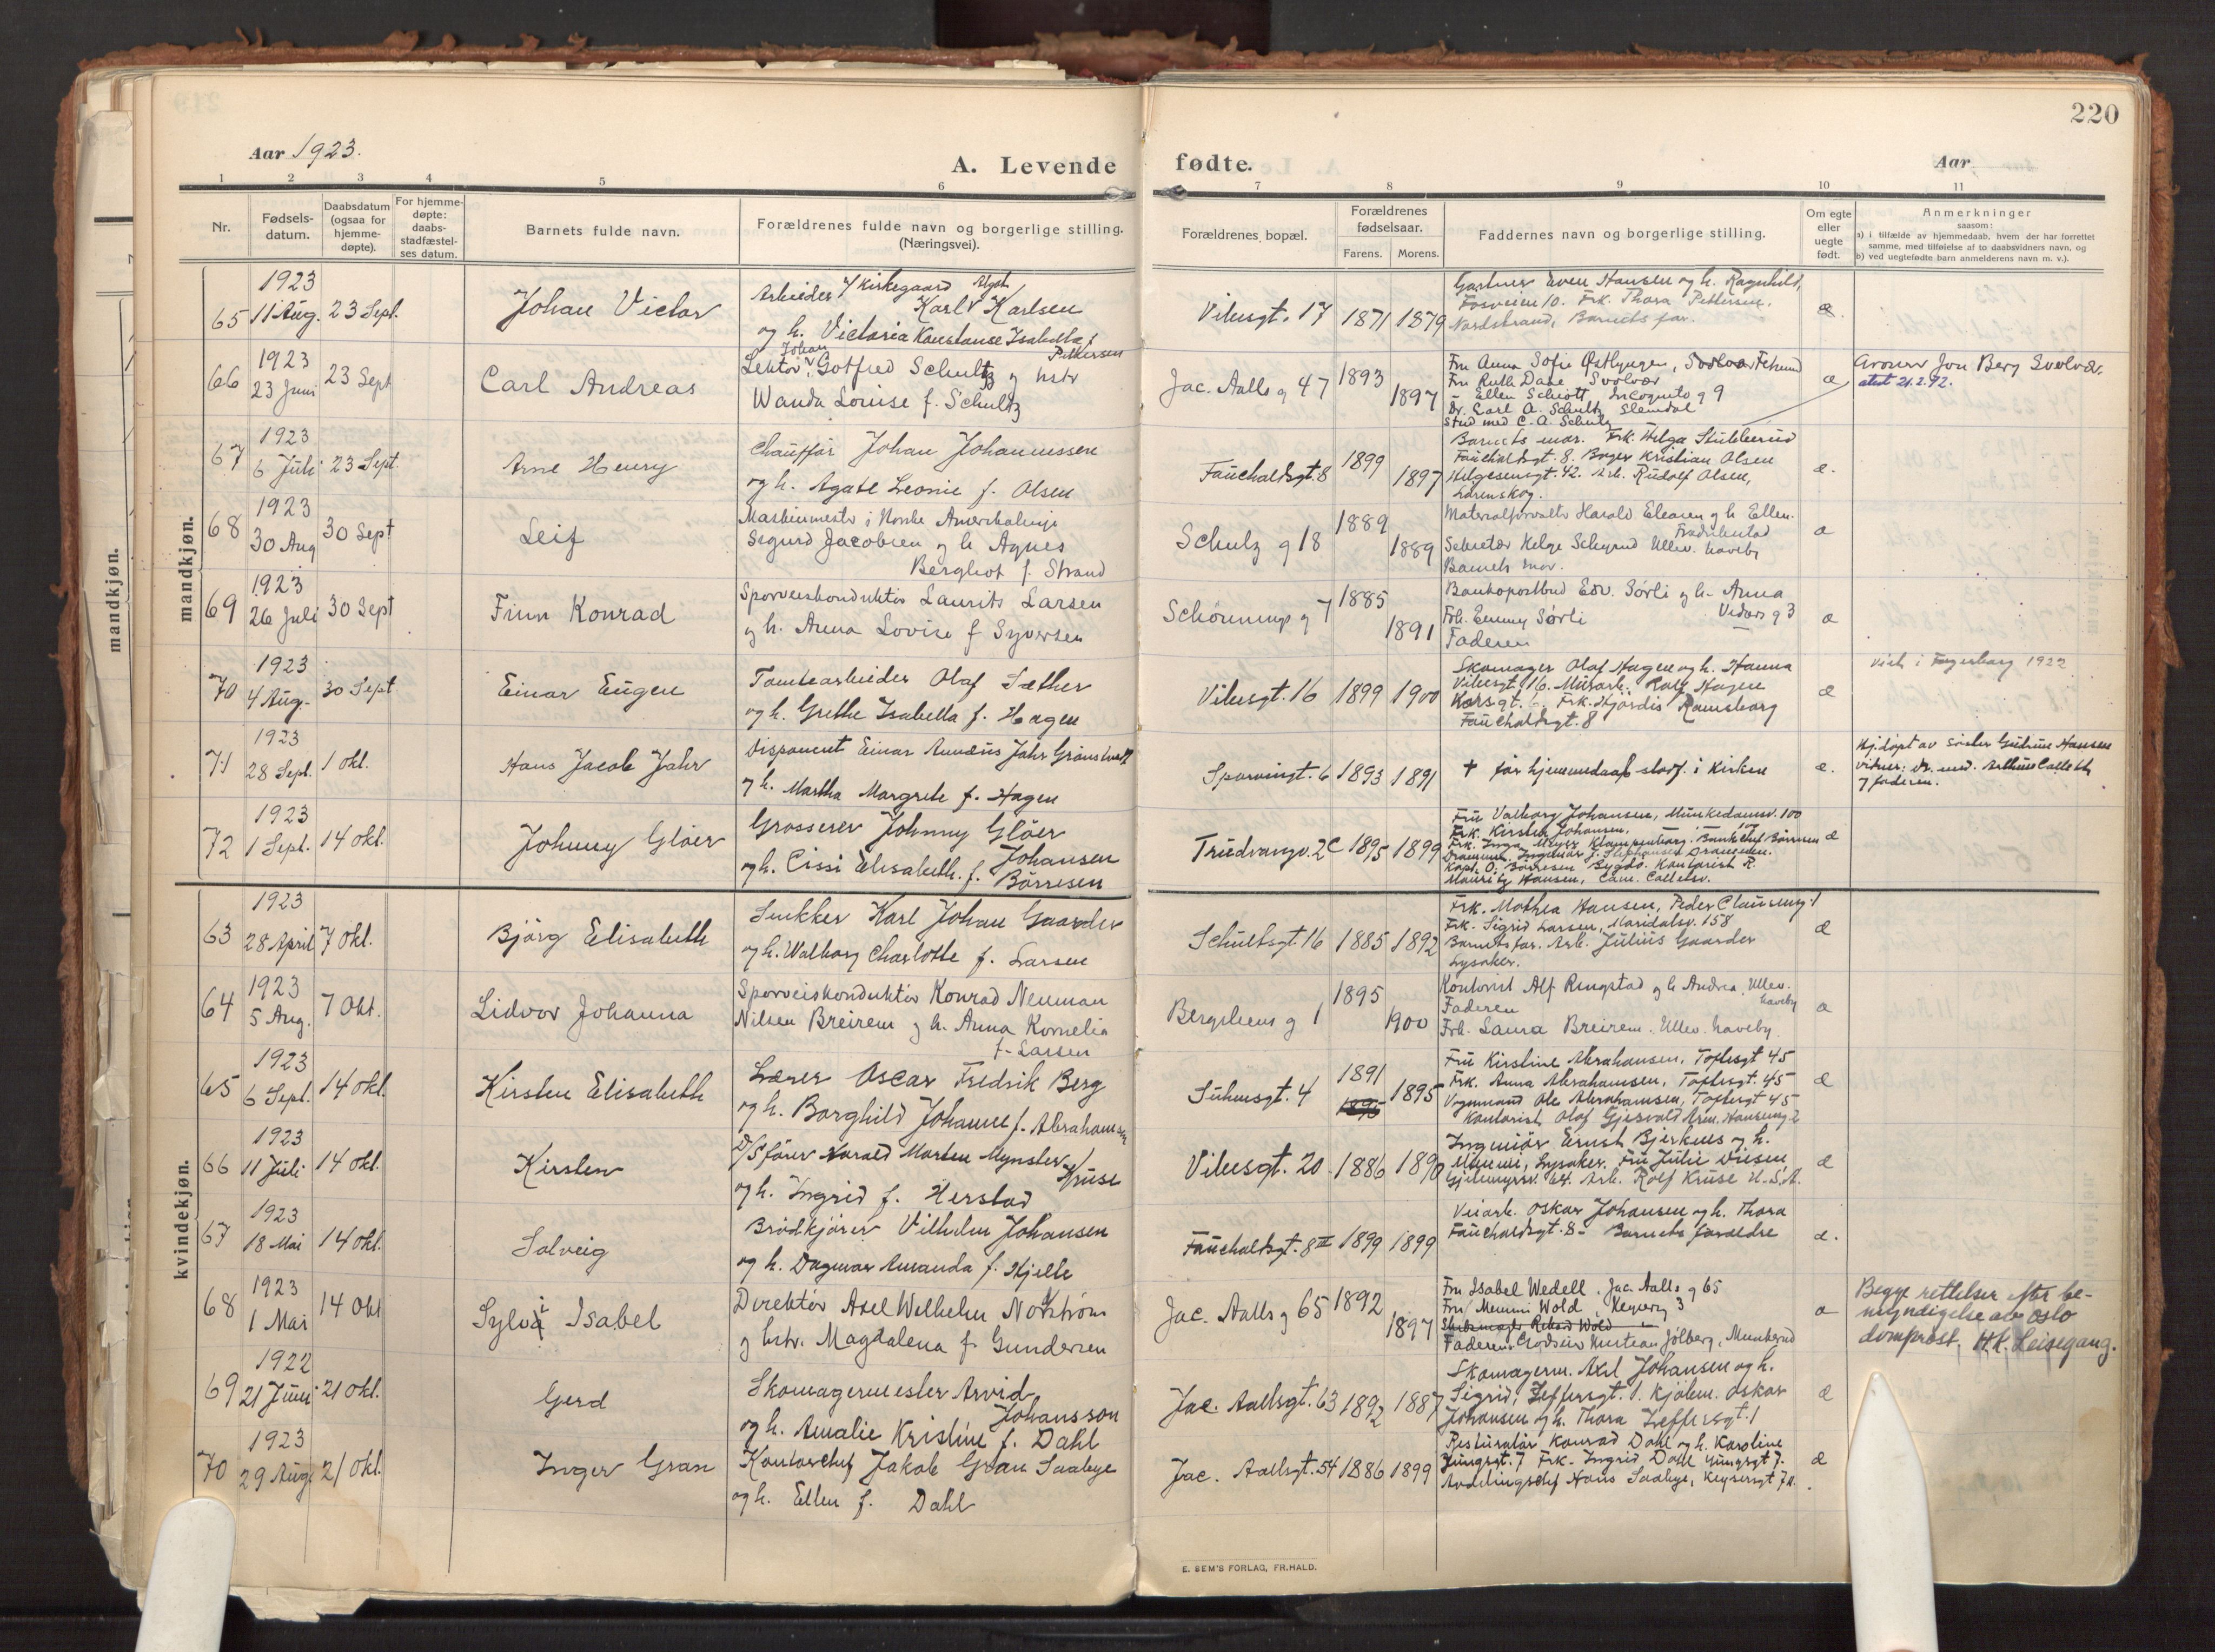 220
Aar 1923.
A. Levende fødte.
Aar
1 2 3 4 5 6 7 8 9 10 11
Nr.
Fødsels-
datum.
Daabsdatum
(ogsaa for
hjemme-
døpte).
For hjemme-
døpte:
daabs-
stadfæstel-
ses datum.
Barnets fulde navn.
Forældrenes fulde navn og borgerlige stilling.
(Næringsvei).
Forældrenes bopæl.
Forældrenes
fødselsaar.
Farens. Morens.
Faddernes navn og borgerlige stilling.
Om egte
eller
uegte
født.
Anmerkninger
saasom:
a) i tilfælde av hjemmedaab, hvem der har forrettet
samme, med tilføielse af to daabsvidners navn, og
b) ved uegtefødte barn anmelderens navn m. v.).
mandkjøn.
mandkjøn.
1923
65 11 Aug. 23 Sept.
Johan Victor
Arbeider v/ Kirkegaard
Karl Karlsen
og h. Victoria Konstanse Isabella f.
Pettersen
Vibesgt. 17 1871 1879
Gartner Even Hansen og h. Ragnhild,
Fosveien 10. Frk. Thora Pettersen.
Nordstrand, Barnets far.
æ.
1923
66 23 Juni 23 Sept
Carl Andreas
Johan
Lektor Gotfred Schultz og hstr
Wanda Louise f. Schultz
Jac. Aalls g 47 1893 1897
Fru Anna Sofie Østlyngen,
Fru Ruth Daae Svolvær
- Ellen Schiøtt, Incognito g 9
Dr. Carl A. Schultz Slemdal
Stud med C. A. Schultz
æ
Jon Berg Svolvær.
atest 21.2.72.
1923
67 6 Juli 23 Sept.
Arne Henry
Chauffør Johan Johannessen
og h. Agate Leonie f. Olsen
Fauchaldsgt. 8 1899 1897
Barnets mor. Frk. Helga Stubberud
Fauchaldsgt. 8. Bager Kristian Olsen
Helgesensgt. 42. Arb. Rudolf Olsen,
Lørenskog.
æ.
1923
68 30 Aug 30 Sept
Leif
Maskinmestr i Norske Amerikalinje
Sigurd Jacobsen og h. Agnes
Bergliot f. Strand
Schulz g 18 1889 1889
Materialforvalter Harald Eleasen og h. Ellen.
Fredrikstad
Sekretær Helge Ullev. haveby
Barnets mor.
æ
1923
69 26 Juli 30 Sept
Finn Konrad
Sporveiskonduktør Laurits Larsen
og h. Anna Lovise f Syversen
Schønnings g 7 1885 1891
Bankopostbud Edv. Sørli og h. Anna
Vidars g 3
Frk. Emmy Sørli
Faderen
æ
1923
70 4 Aug. 30 Sept
Einar Eugen
Tomtearbeider Olaf Sæther
og h. Grethe Isabella f. Hagen
Vibesgt. 16 1899 1900
Skomager Olaf Hagen og h. Hanna
Vibesgt. 16. Murarb. Rolf Hagen
Korsgt. Frk. Hjørdis Ramsborg
Fauchaldsgt. 8
æ
viet i Fagerborg 1922
1923
71 28 Sept. 1 okt.
Hans Jacob Jahr
Disponent Einar Annæus Jahr Grønstvedt
og h. Martha Margrete f. Hagen
Sporvingt. 6 1893 1891
† før hjemmedaab stadf. i Kirken
æ.
Hj. døpt av søster Gudrun Hansen
vidner: dr. med. Arthur Collett
og faderen.
1923
72 1 Sept. 14 okt.
Johnny Gløer
Grosserer Johnny Gløer
Johansen
og h. Cissi Elisabeth f. Børresen
Trudvangv. 2C 1895 1899
Fru Valborg Johansen, Munkedamsv. 100
Frk. Kirsten Johansen.
Frk. Inga Meyer Klampenborg. Bankchef Børresen
Drammen. Ingeniør J. Stephansen Drammen.
Kapt. O. Børresen Bygdø. Kontorist R.
Mauritz Hansen, Cam. Collettsv.
æ
kvindekjøn.
1923
63 28 April 7 okt.
Bjørg Elisabeth
Snekker Karl Johan Gaarder
og h. Walborg Charlotte f. Larsen
Schultsgt. 16 1885 1892
Frk. Mathea Hansen, Peder Clausensg. 1
Frk. Sigrid Larsen, Maridalsv. 158
Barnets far. Arb. Julius Gaarder
Lysaker.
æ
1923
64 5 Aug. 7 Okt.
Lidvor Johanna
Sporveiskonduktør Konrad Neuman
Nilsen Breirem og h. Anna Kornelia
f. Larsen
Bergsliens g 1 1895 1900
Kontorist Alf Ringstad og h. Andrea, Ullev.
haveby
Faderen
Frk. Laura Breirem. Ullev. haveby.
æ
1923
65 6 Sept. 14 okt.
Kirsten Elisabeth
Lærer Oscar Fredrik Berg
og h. Borghild Johanne f. Abrahamsen
Suhmsgt. 4 1891 1895 1895
Fru Kirstine Abrahamsen, Toftesgt 45
Frk. Anna Abrahamsen, Toftesgt. 45
Vognmand Ole Abrahamsen, Toftesgt 45
Kontorist Olaf Gjesvold Arm. Hansensg 2
æ
1923
66 11 Juli 14 okt.
Kirsten
D/S fører Harald Morten Mynster
Kruse
og h. Ingrid f. Herstad
Vibesgt. 20 1886 1890
Ingeniør Ernst Bjerknes og h.
Mimmi, Lysaker. Fru Julie Vriesen
Gjelemyrsv. 64. Arb. Rolf Kruse U.S.A.
æ
1923
67 18 Mai 14 okt.
Solveig
Brødkjører Vilhelm Johansen
og h. Dagmar Amanda f. Hjelle
Fauchaldsgt. 8 III 1899 1899
Veiarb. Oskar Johansen og h. Thora
Fauchaldsgt. 8. Barnets forældre
æ.
1923
68 1 Mai 14 Okt
Sylvi Isabel
Direktør Axel Wilhelm Norstrøm
og hstr. Magdalena f. Gundersen
Jac. Aalls g 65 1892 1897
Fru Isabel Wedell. Jac. Aalls g 65
Fru Memmi Wold, Keysers g 3
Skibsmægler Rikard Wold
Faderen. Kristian Jølberg, Munkerud
æ
Begge rettelser efter be-
myndigelse av Oslo
domprost. H.H. Leisegang.
1922
69 21 Juni 21 okt.
Gerd
Skomagermester Arvid
Johansson
og h. Amalie Kristine f. Dahl
Jac. Aallsgt. 63 1892 1887
Skomagerm. Axel Johansen og h.
Sigrid, Zeffersgt. 1. Kjølem. Oskar
Johansen og h. Thora Zeffersgt. 1
æ
1923
70 29 Aug. 21 okt.
Inger Gran
Kontorchef Jakob Gran Saabye
og h. Ellen f. Dahl
Jac. Aallsgt. 54 1886 1899
Restauratør Konrad Dahl og h. Karoline
Jungsgt. 7 Frk. Ingrid Dahl Jungsgt 7.
Avdelingschef Hans Saabye, Keysersgt 7 a.
æ
E. SEM'S FORLAG, FR.HALD.